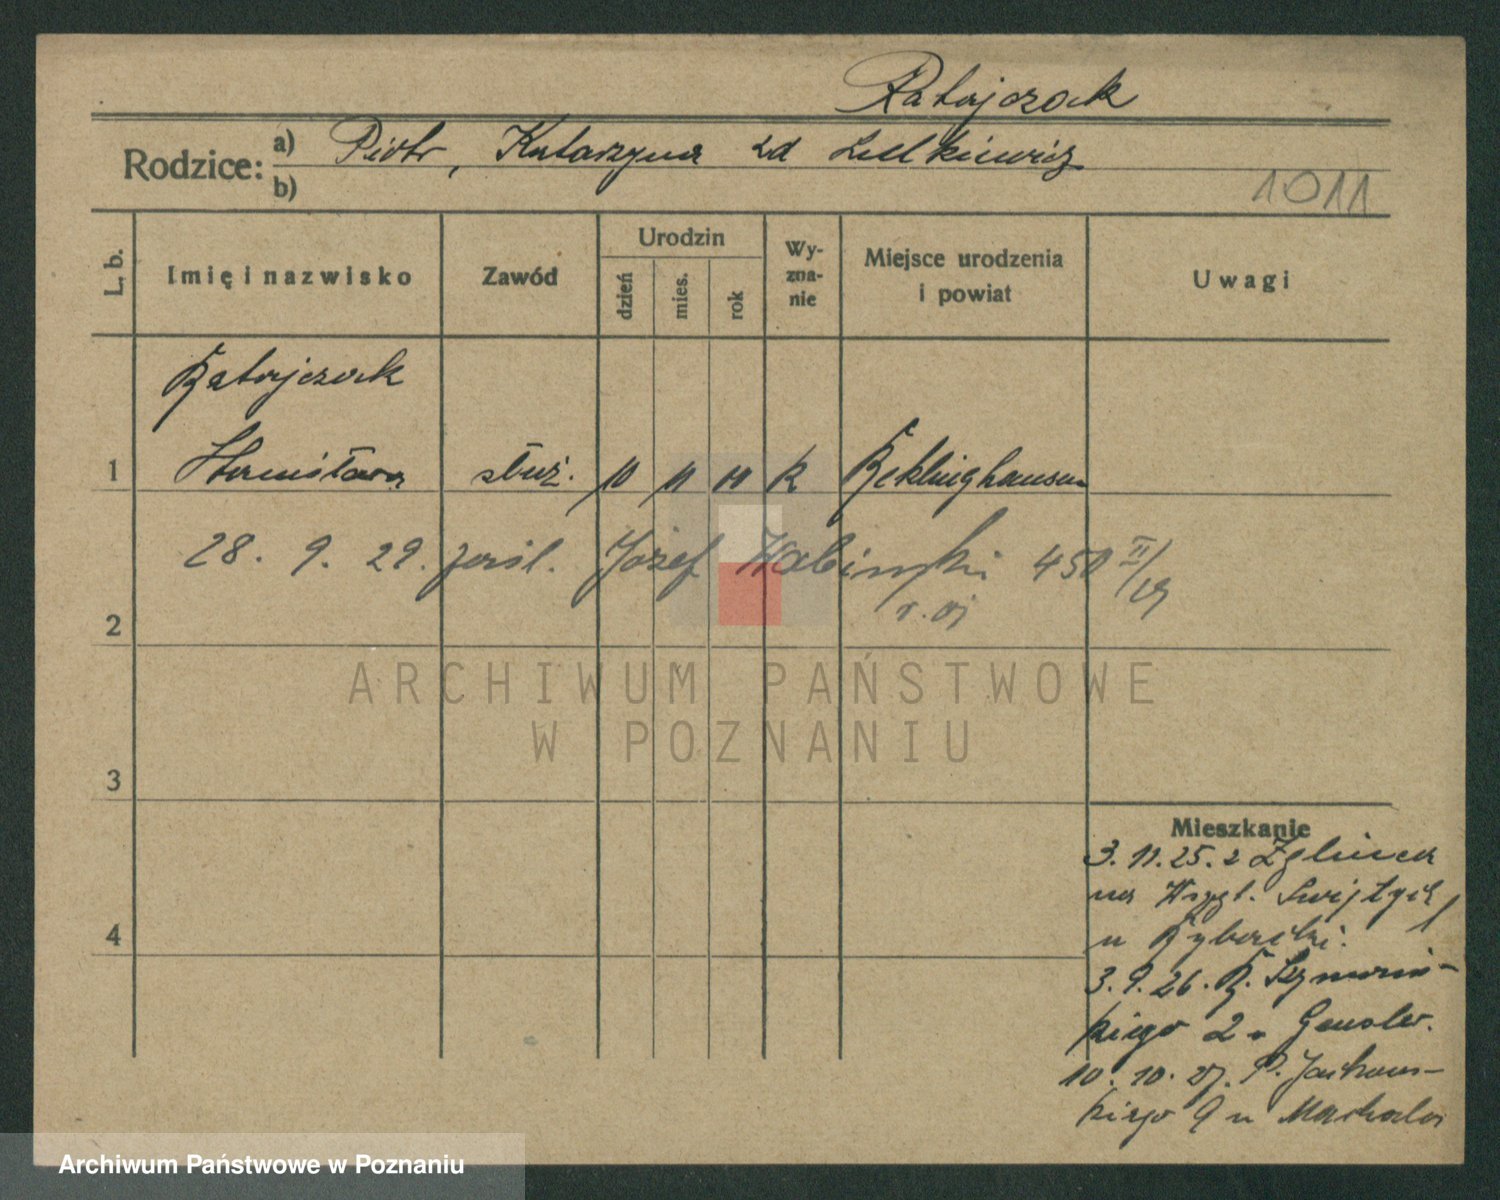 Ratajczak
Rodzice: a) Piotr, Katarzyna zd Lelkiewicz
b)
1011
L. b.
Imię i nazwisko
Zawód
Urodzin
dzień
mies.
rok
Wy-
zna-
nie
Miejsce urodzenia
i powiat
Uwagi
Ratajczak
1 Stanisława służ. 10 11 K Reklinghausen
28. 9. 29. Józef 450 II/
2
3
4
Mieszkanie
3. 11. 25. z
na Wzg. Świętych
u
3. 9. 26. R. Szymań-
skiego 2 u Gensler.
10. 10. 27. P. Jackow-
skiego 9 u
ARCHIWUM PAŃSTWOWE
W POZNANIU
Archiwum Państwowe w Poznaniu